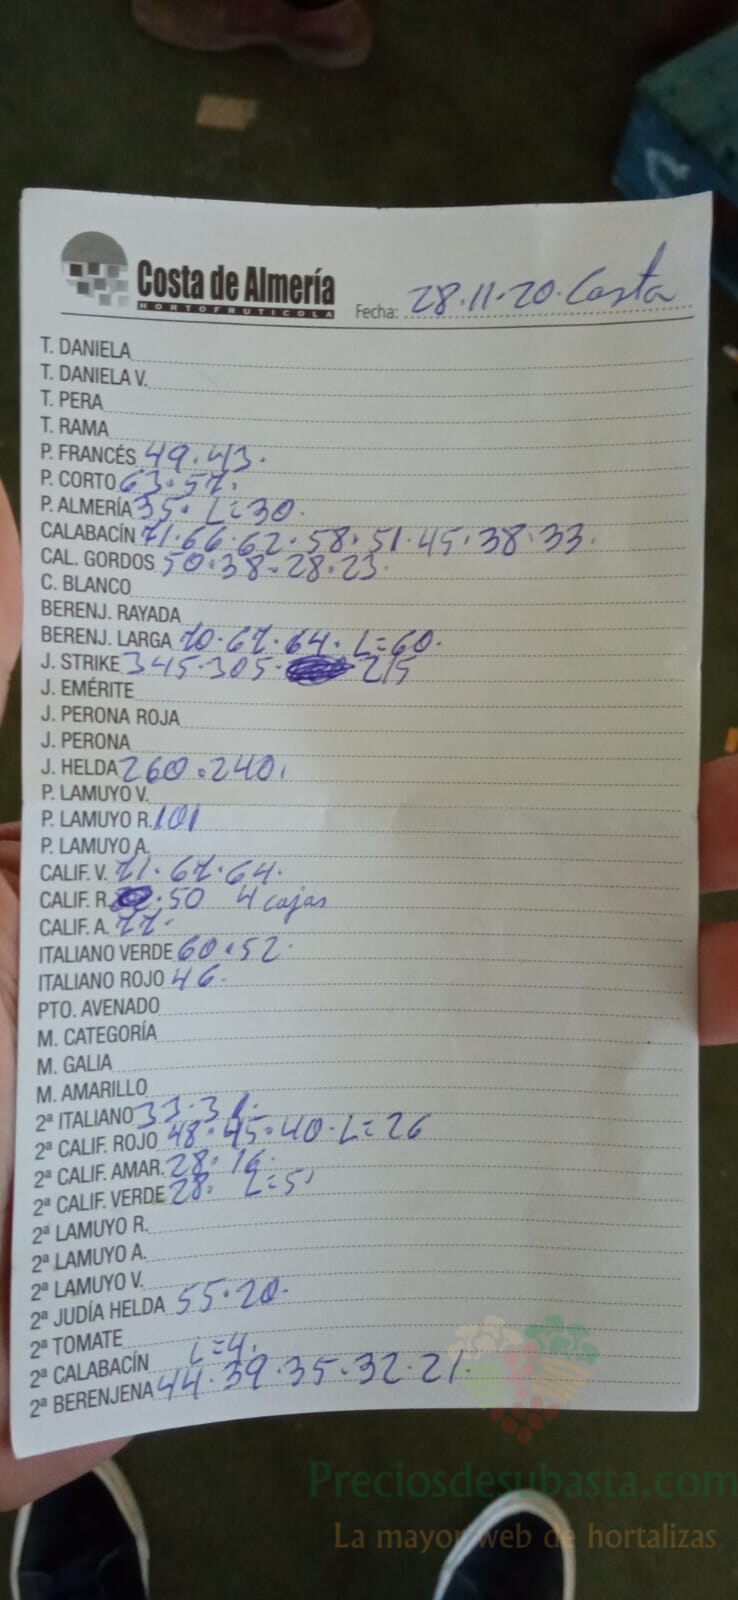 Costa de Almería
HORTOFRUTICOLA
Fecha: 28.11.20. Costa
T. DANIELA
T. DANIELA V.
T. PERA
T. RAMA
P. FRANCÉS 49.43.
P. CORTO 63.57.
P. ALMERÍA 35. L=30.
CALABACÍN 71.66.62.58.51.45.38.33.
CAL. GORDOS 50.38.28.23.
C. BLANCO
BERENJ. RAYADA
BERENJ. LARGA 70.67.64. L=60.
J. STRIKE 345.305. 215
J. EMÉRITE
J. PERONA ROJA
J. PERONA
J. HELDA 260.240.
P. LAMUYO V.
P. LAMUYO R. 101
P. LAMUYO A.
CALIF. V. 71.67.64.
CALIF. R. .50 4 cajas
CALIF. A. 77.
ITALIANO VERDE 60.52.
ITALIANO ROJO 46.
PTO. AVENADO
M. CATEGORÍA
M. GALIA
M. AMARILLO
2ª ITALIANO 33.
2ª CALIF. ROJO 48.45.40. L=26
2ª CALIF. AMAR. 28.16.
2ª CALIF. VERDE 28. L=5
2ª LAMUYO R.
2ª LAMUYO A.
2ª LAMUYO V.
2ª JUDÍA HELDA 55.20.
2ª TOMATE
2ª CALABACÍN L=4.
2ª BERENJENA 44.39.35.32.21
Preciosdesubasta.com
La mayor web de hortalizas